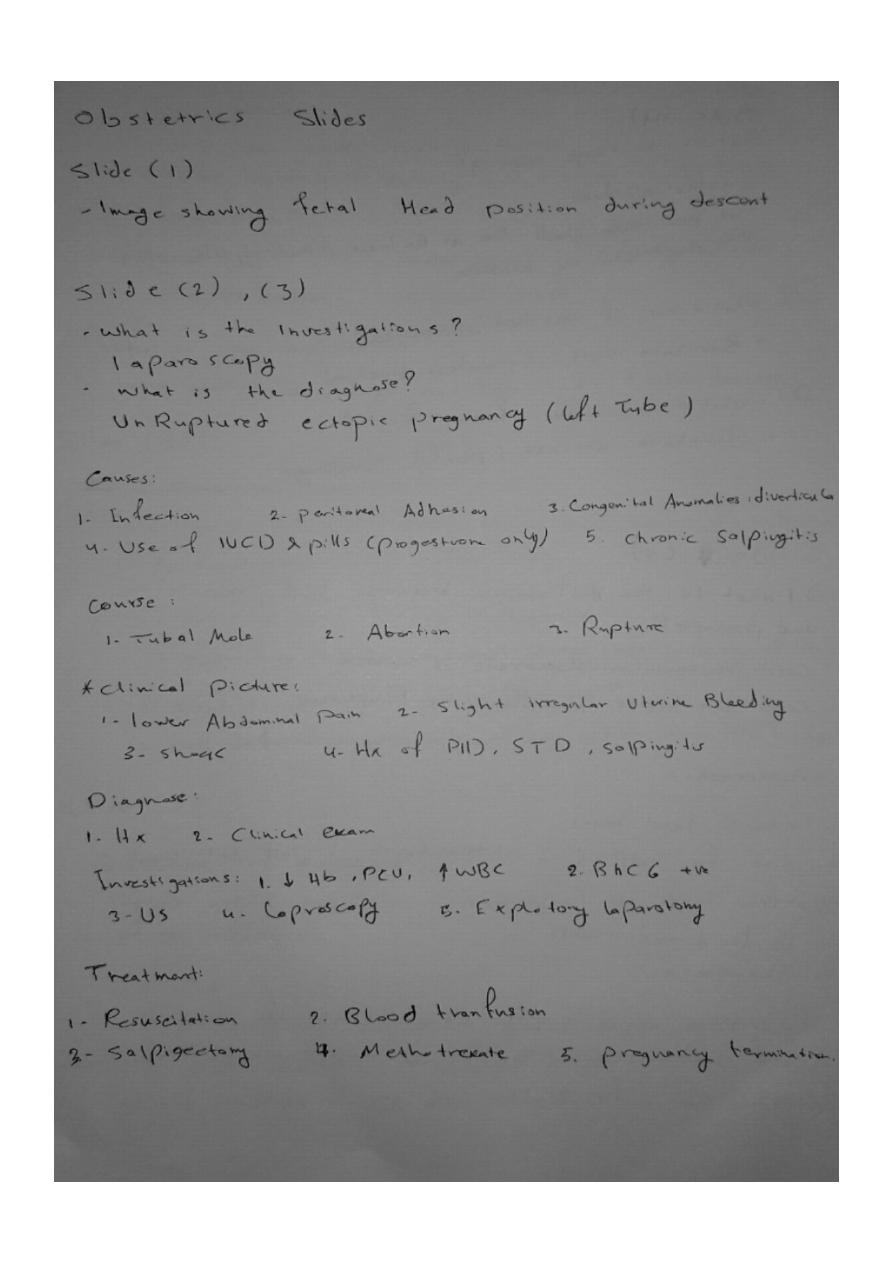 Obstetrics Slides
Slide (1)
- Image showing fetal Head position during descent
Slide (2) , (3)
- What is the Investigations?
laparoscopy
- What is the diagnose?
UnRuptured ectopic pregnancy (left Tube)
Causes:
1- Infection 2- peritoneal Adhesion 3. Congenital Anomalies: diverticula
4. Use of IUCD & pills (progesterone only) 5. Chronic Salpingitis
Course :
1- Tubal Mole 2- Abortion 3- Rupture
* Clinical picture:
1- lower Abdominal Pain 2- Slight irregular Uterine Bleeding
3- Shock 4- Hx of PID, STD, salpingitis
Diagnose:
1. Hx 2- Clinical exam
Investigations: 1. ↓ Hb, PCV, ↑ WBC 2. BhCG +ve
3- US 4- laproscopy 5. Explotory laparotomy
Treatment:
1- Resuscitation 2. Blood tranfusion
3- Salpigectomy 4. Methotrexate 5. pregnancy termination.